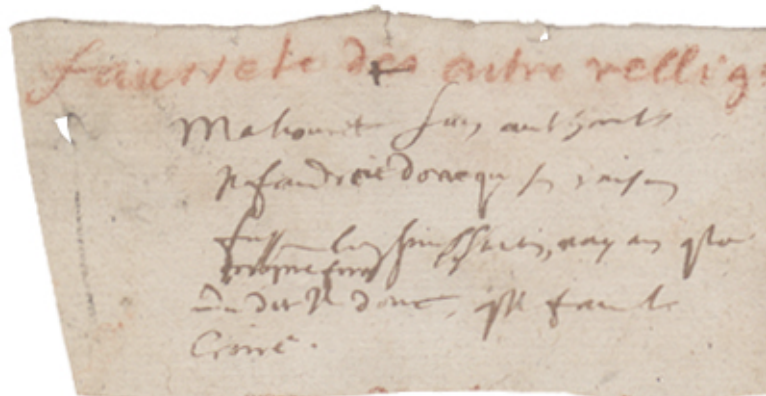 Faussete des autre relligi
Mahomet sans authorite
Il faudroit donc que ses raisons
fussent bien puissantes, nayant que
leur propre force
que dit il donc, qu'il faut le
croire.